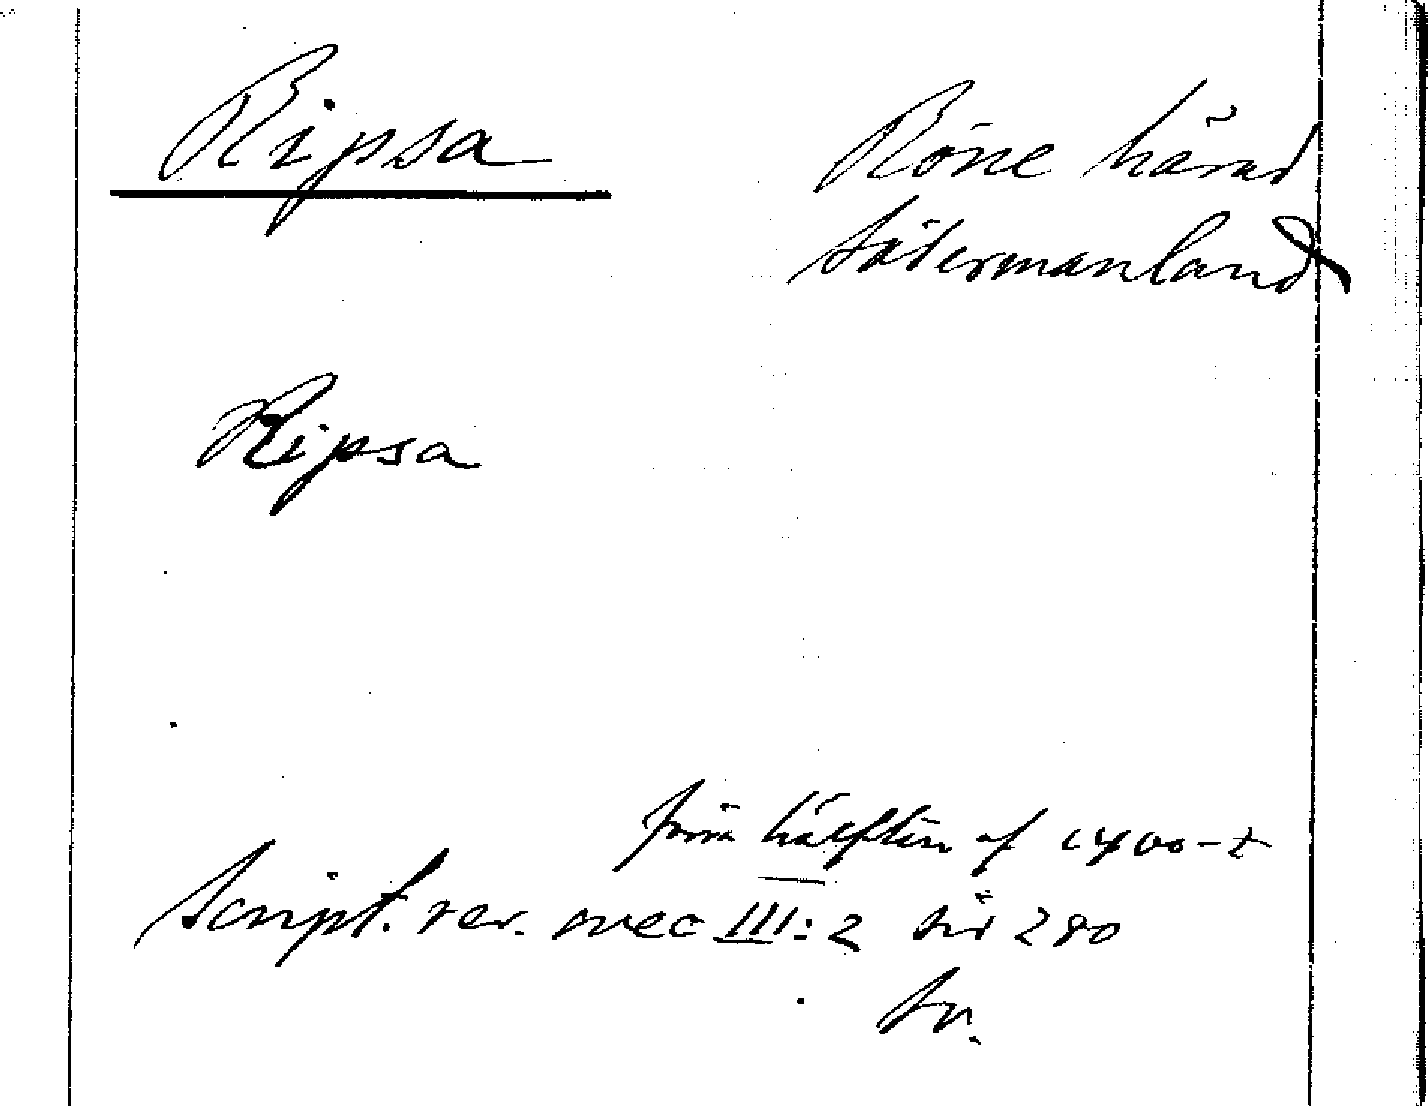 Ripsa
Röne härad
Södermanland
Ripsa
förra hälften af 1400-t
Script. rer. svec III:2 sid 280
Sv.